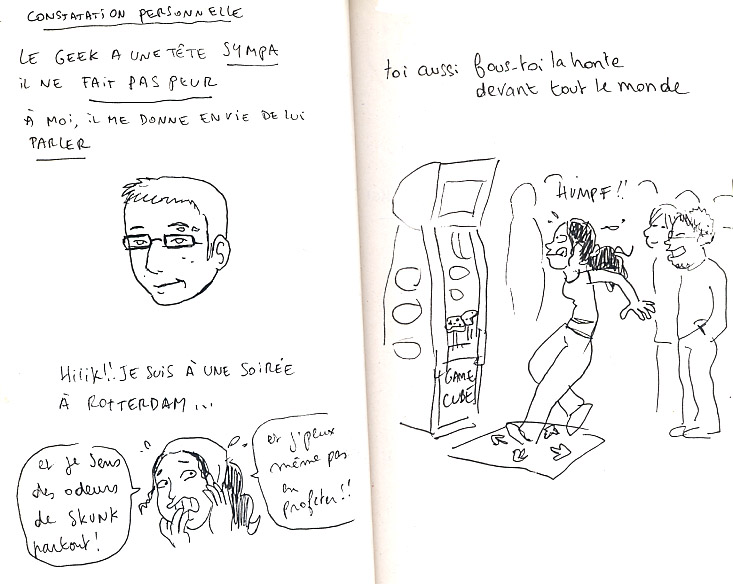 CONSTATATION PERSONNELLE
LE GEEK A UNE TÊTE SYMPA
IL NE FAIT PAS PEUR
À MOI, IL ME DONNE ENVIE DE LUI
PARLER
Hiiik!! JE SUIS À UNE SOIRÉE
À ROTTERDAM...
et je sens
des odeurs
de SKUNK
partout!
et j'peux
même pas
en
profiter!!
toi aussi fous-toi la honte
devant tout le monde
HUMPF!!
GAME
CUBE